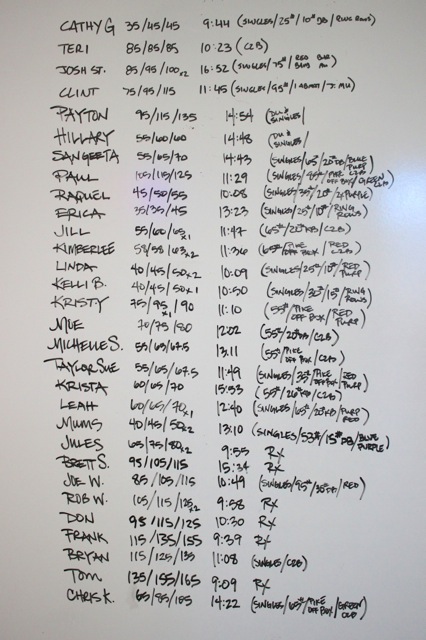 CATHY G 35/45/45 9:44 (SINGLES/25#/10#DB/BLUE ROWS)
TERI 85/85/85 10:23 (C2B)
JOSH ST. 85/95/100x2 16:52 (SINGLES/75#/RED BAR
CLINT 75/95/115 11:45 (SINGLES/95#/1 ABMAT/
PAYTON 95/115/135 14:54 (DU & SINGLES/
HILLARY 55/60/60 14:48 (DU & SINGLES/
SANGEETA 55/65/70 14:43 (SINGLES/65#/20#DB/BLUE PURP
PAUL 105/115/125 11:29 (SINGLES/ PIKE OFF BOX/GREEN
RAQUEL 45/50/55 10:08 (SINGLES/35#/20#/2 PURPLE)
ERICA 35/35/45 13:23 (SINGLES/25#/10#/RING ROWS)
JILL 55/60/65x1 11:47 (65#/20#DB/C2B)
KIMBERLEE 58/58/63x2 11:36 (65#/PIKE OFF BOX/RED C2B)
LINDA 40/45/50x2 10:09 (SINGLES/25#/10#/RED PURP)
KELLI B. 40/45/50x1 10:50 (SINGLES/30#/15#/RING ROWS)
KRISTY 75/95x1/90 11:10 (55#/PIKE OFF BOX/RED PURP)
MUE 70/75/80 12:02 (55#/20#DB/C2B)
MICHELLE S. 55/63/67.5 13:11 (55#/PIKE OFF BOX/C2B)
TAYLOR SUE 55/65/67.5 11:49 (SINGLES/35#/PIKE OFF BOX/RED PURP)
KRISTA 60/65/70 15:53 (55#/20#DB/C2B)
LEAH 60/65/70x1 12:40 (SINGLES/65#/20#DB/PURP RED)
MUMS 40/45/50x2 13:10 (SINGLES/53#/15#DB/BLUE PURPLE)
JULES 65/75/80x2 9:55 RX
BRETT S. 95/105/115 15:34 RX
JOE W. 85/105/115 10:49 (SINGLES/95#/35#DB/RED)
ROB W. 105/115/125x2 9:58 RX
DON 95/115/125 10:30 RX
FRANK 115/135/155 9:39 RX
BRYAN 115/125/135 11:08 (SINGLES/C2B)
TOM 135/155/165 9:09 RX
CHRIS K. 65/85/105 14:22 (SINGLES/65#/PIKE OFF BOX/GREEN